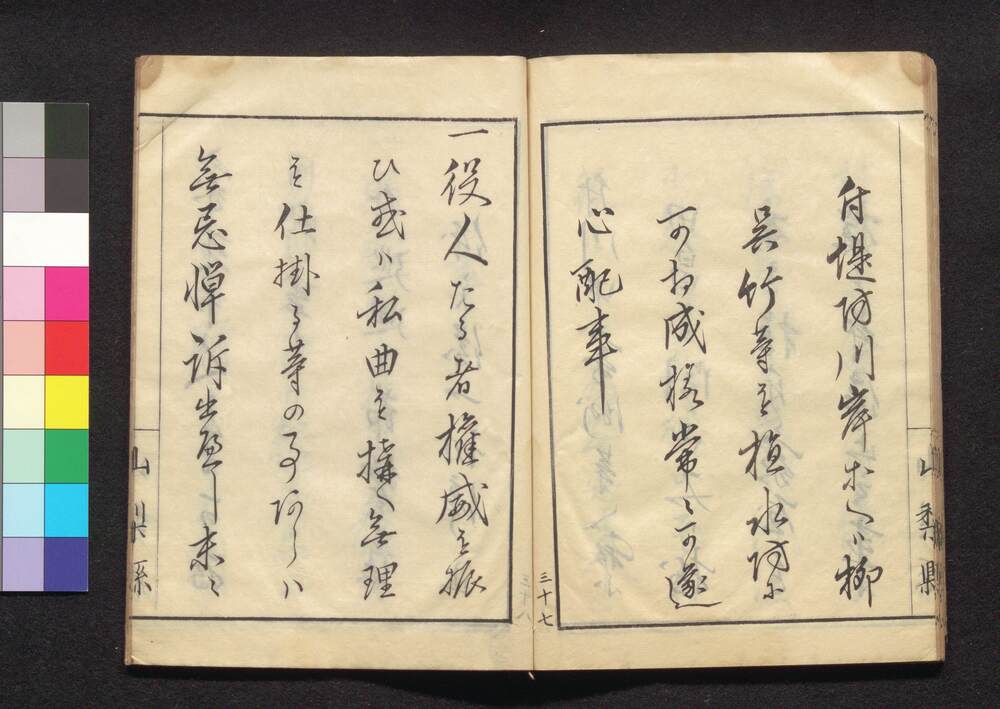 付堤防川岸等ニハ柳
呉竹等を植水防ニ
可相成様常々可遂
心配事
三十七
山梨県
一役人たる者権威を振
ひ或ハ私曲を構へ無理
を仕掛る等の事アラハ
無忌憚訴出へし末々
山梨県